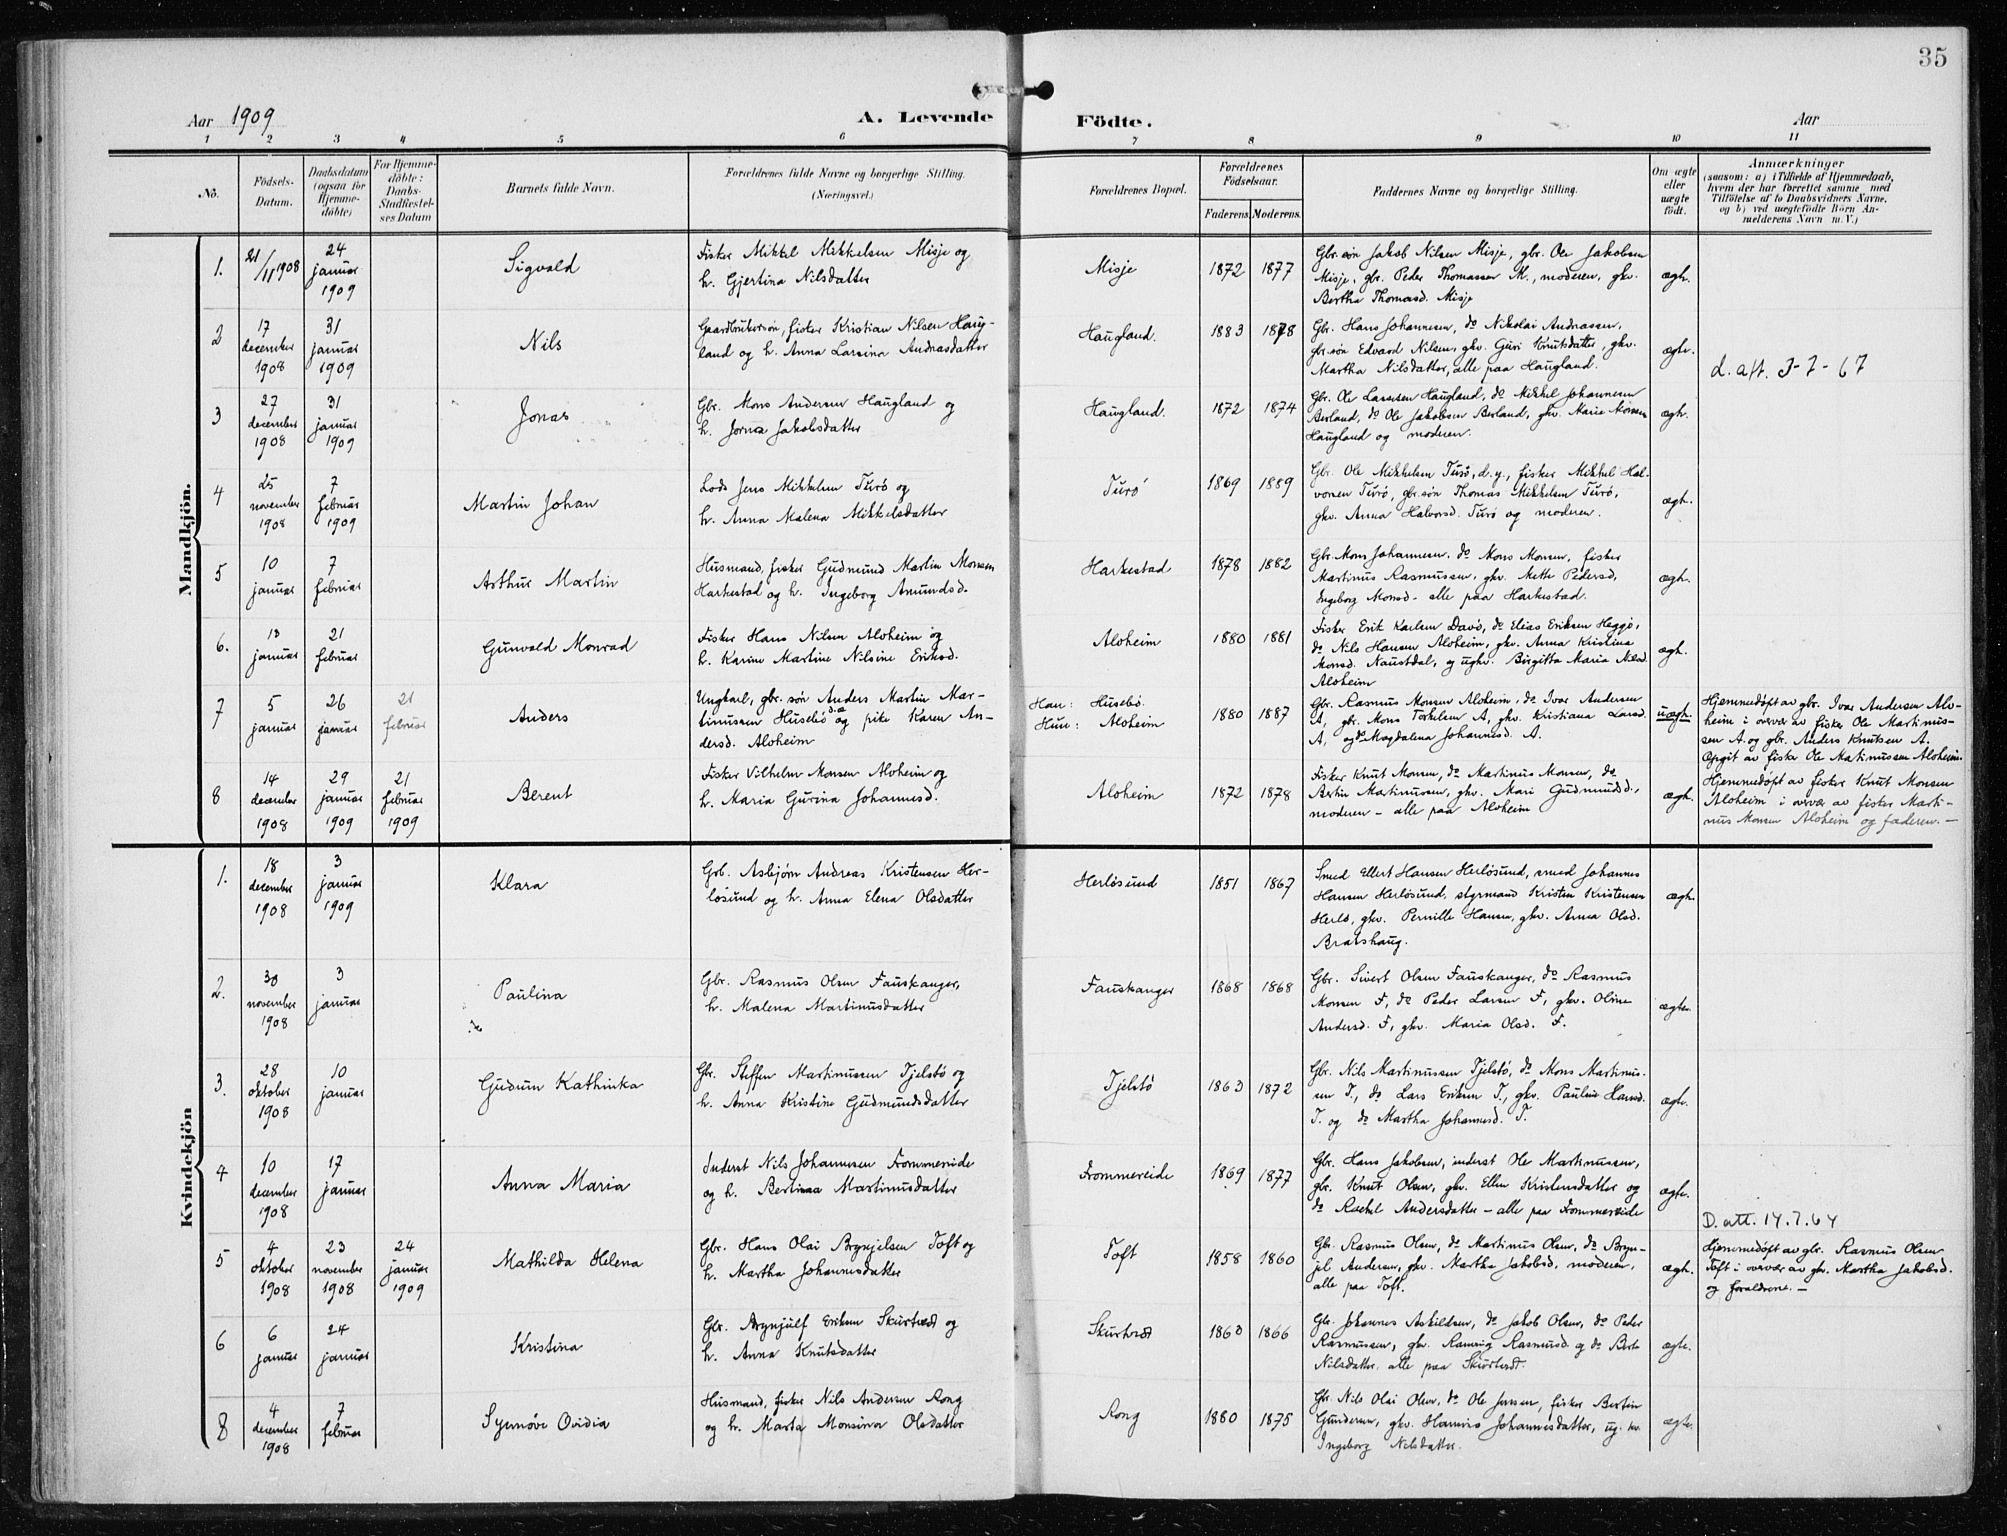 35
Aar 1909
A. Levende Födte.
Aar
1 2 3 4 5 6 7 8 9 10 11
No.
Födsels-
Datum.
Daabsdatum
(ogsaa for
Hjemme-
döbte)
For Hjemme-
döbte:
Daabs-
Stadfæstel-
ses Datum
Barnets fulde Navn.
Forældrenes fulde Navne og borgerlige Stilling.
(Næringsvei.)
Forældrenes Bopæl.
Forældrenes
Födselsaar.
Faderens. Moderens.
Faddernes Navne og borgerlige Stilling.
Om ægte
eller
uægte
födt.
Anmærkninger
(saasom: a) i Tilfælde af Hjemmedaab,
hvem der har forrettet samme med
Tilföielse af to Daabsvidners Navne,
og b) ved uægtefödte Börn An-
melderens Navn m. V.)
Mandkjön.
1.
21/11 1908
24
januar
1909
Sigvald
Fisker Mikkel Mikkelsen Misje og
h. Gjertina Nilsdatter
Misje
1872 1877
Gbr. søn Jakob Nilsen Misje, gbr. Ole Jakobsen
Misje, gbr. Peder Thomassen M., moderen, gkv.
Bertha Thomasd. Misje
ægt.
2
17
december
1908
31
januar
1909
Nils
Gaardbrukersøn, fisker Kristian Nilsen Haug-
land og h. Anna Larsina Andreasdatter
Haugland.
1883 1878
Gbr. Hans Johannesen, do Nikolai Andreassen,
gbr. søn Edvard Nilsen, gkv. Guri Knutsdatter, gkv.
Martha Nilsdatter, alle paa Haugland.
ægte.
d. aft. 3-7-67
3
27
december
1908
31
januar
1909
Jonas
Gbr. Mons Andersen Haugland og
h. Jorina Jakobsdatter
Haugland.
1872 1874
Gbr. Ole Larsen Haugland, do Mikkel Johannesen
Berland, do Ole Jakobsen Berland, gkv. Marie Monsen
Haugland og moderen.
ægt.
4
25
november
1908
7
februar
1909
Martin Johan
Lods Jens Mikkelsen Turø og
h. Anna Malena Mikkelsdatter
Turø
1869 1889
Gbr. Ole Mikkelsen Turø, d.y., fisker Mikkel Hal-
vorsen Turø, gbr. søn Thomas Mikkelsen Turø,
gkv. Anna Halvorsd. Turø og moderen.
ægt.
5
10
januar
7
februar
Arthur Martin
Husmand, fisker Gudmund Martin Monsen
Harkestad og h. Ingeborg Amundsd.
Harkestad
1878 1882
Gbr. Mons Johannesen, do Mons Monsen, fisker
Martinus Rasmussen, gkv. Mette Pedersd,
Ingeborg Monsd. - alle paa Harkestad.
ægt.
6.
13
januar
21
februar
Gunvald Monrad
Fisker Hans Nilsen Aloheim og
h. Karine Martine Nilsine Eriksd.
Aloheim
1880 1881
Fisker Erik Karlsen Davø, do Elias Eriksen Heggø,
do Nils Hansen Aloheim, gkv. Anna Kristina
Monsd. Naustdal, og ugkv. Birgitta Maria Nilsd.
Aloheim
ægt.
7
5
januar
26
januar
21
februar
Anders
Ungkarl, gbr. søn Anders Martin Mar-
tinussen Husebø og pike Karen An-
dersd. Aloheim
Han: Husebø.
Hun: Aloheim
1880 1887
Gbr. Rasmus Monsen Aloheim, do Ivar Andersen
A, gbr. Mons Torkelsen A, gkv. Kristiana Larsd.
A, og do Magdalena Johannesd. A.
uægt.
Hjemmedøpt av gbr. Ivar Andersen Alo-
heim i overvær av fisker Ole Martinus-
sen A. og gbr. Anders Knutsen A.
Opgit av fisker Ole Martinussen Aloheim.
8
14
december
1908
29
januar
1909
21
februar
1909
Berent
Fisker Vilhelm Monsen Aloheim og
h. Maria Gurina Johannesd.
Aloheim
1872 1878
Fisker Knut Monsen, do Martinus Monsen, do
Martinussen, gkv. Mari Gudmundsd.,
moderen - alle paa Aloheim
ægt.
Hjemmedøpt av fisker Knut Monsen
Aloheim i overvær av fisker Marti-
nus Monsen Aloheim og faderen. -
Kvindekjön
1.
18
december
1908
3
januar
1909
Klara
Gbr. Asbjørn Andreas Kristensen Her-
løsund og h. Anna Elena Olsdatter
Herløsund
1851 1867
Smed Ellert Hansen Herløsund, smed Johannes
Hansen Herløsund, styrmand Kristen Kristensen
Herlø, gkv. Pernille Hansen, gkv. Anna Olsd.
Bratshaug.
ægt.
2.
30
november
1908
3
januar
Paulina
Gbr. Rasmus Olsen Fauskanger,
h. Malena Martinusdatter
Fauskanger
1868 1868
Gbr. Sivert Olsen Fauskanger, do Rasmus
Monsen F, do Peder Larsen F, gkv. Oline
Andersd. F, gkv. Maria Olsd. F.
ægte.
3.
28
oktober
1908
10
januar
Gudrun Kathinka
Gbr. Steffen Martinussen Tjelstø og
h. Anna Kristine Gudmundsdatter
Tjelstø
1863 1872
Gbr. Nils Martinussen Tjelstø, do Mons Martinus-
sen T., do Lars Eriksen T., gkv. Pauline Hansd.
T. og do Martha Johannesd. T.
ægte.
4
10
december
1908
17
januar
Anna Maria
Inderst Nils Johannesen Frommereide
og h. Bertinaa Martinusdatter
Frommereide
1869 1877
Gbr. Hans Jakobsen, inderst Ole Martinussen,
gbr. Knut Olsen, gkv. Ellen Kristensdatter og
do Rachel Andersdatter - alle paa Frommereide
ægte.
5
4
oktober
1908
23
november
1908
24
januar
1909
Mathilda Helena
Gbr. Hans Olai Brynjelsen Toft og
h. Martha Johannesdatter
Toft
1858 1860
Gbr. Rasmus Olsen, do Martinus Olsen, do Bryn-
jel Andersen, gkv. Martha Jakobsd, moderen,
alle paa Toft.
ægt.
D. att. 14.7.64
Hjemmedøpt av gbr. Rasmus Olsen
Toft i overvær av gkv. Martha Jakobsd.
og forældrene. -
6
6
januar
24
januar
Kristina
Gbr. Brynjulf Eriksen Skurtveit og
h. Anna Knutsdatter
Skurtveit
1860 1866
Gbr. Johannes Askildsen, do Jakob Olsen, do Peder
Rasmussen, gkv. Rasmusd. og do Berte
Nilsdatter. alle paa Skurtveit.
ægte.
8
4
december
1908
7
februar
Synnøve Ovidia
Husmand, fisker Nils Andersen Rong
og h. Marta Monsina Olsdatter
Rong
1880 1875
Gbr. Nils Olai Olsen, do Ole Jensen, fisker Bertin
Gundersen, gkv. Johannesdatter, ug. kv.
Ingeborg Nilsdatter.
ægte.